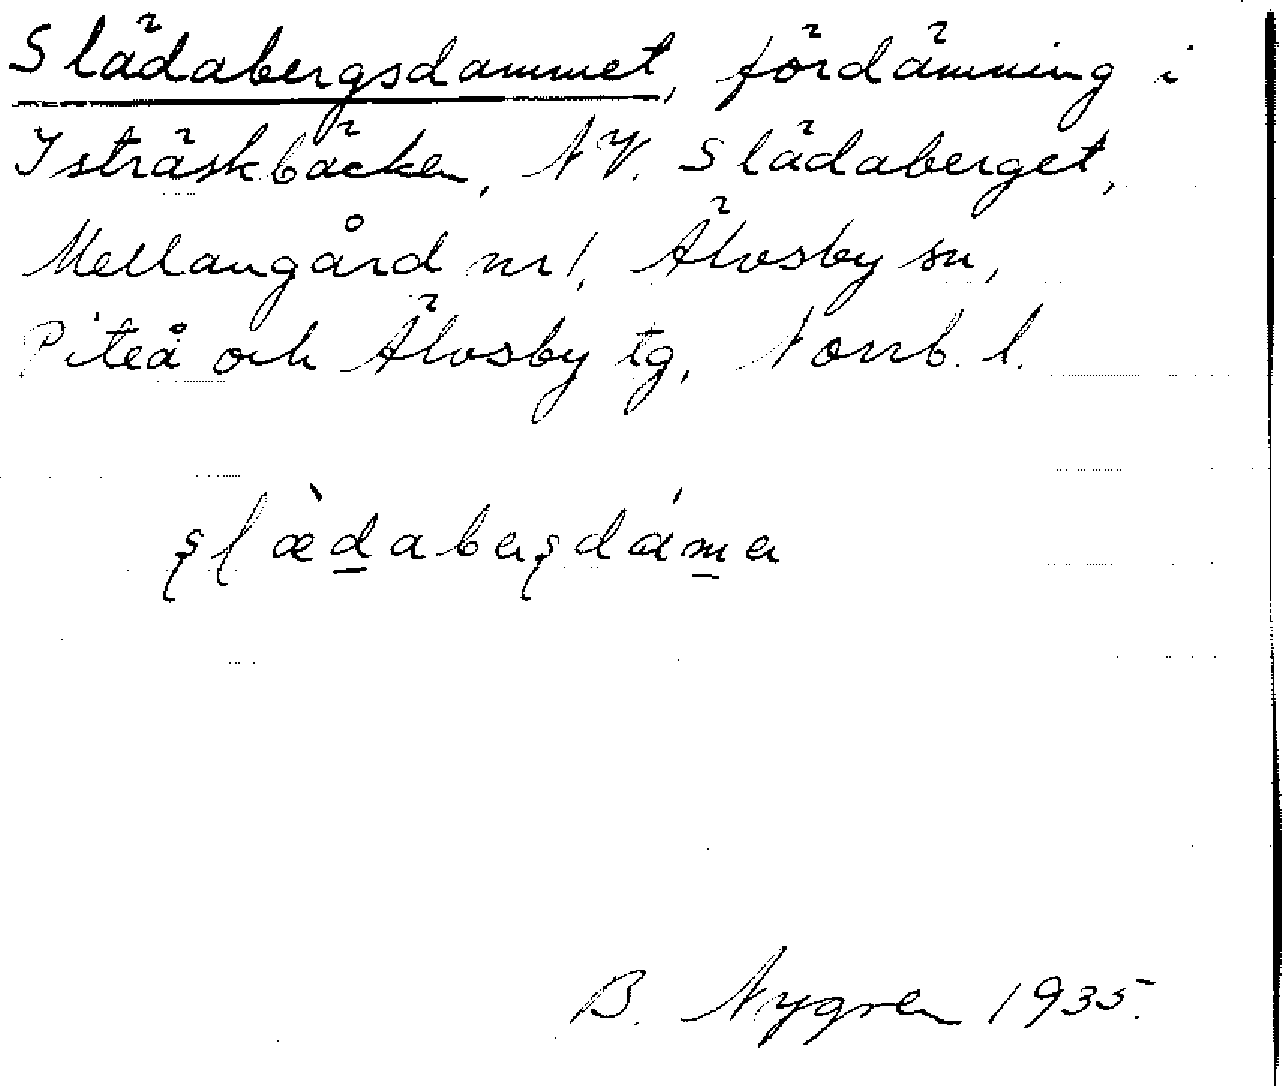 Slädabergsdammet, fördämning i
Isträskbäcken, NV. Slädaberget,
Mellangård nr 1, Älvsby sn,
Piteå och Älvsby tg, Norrb. l.
B. Nygren 1935.